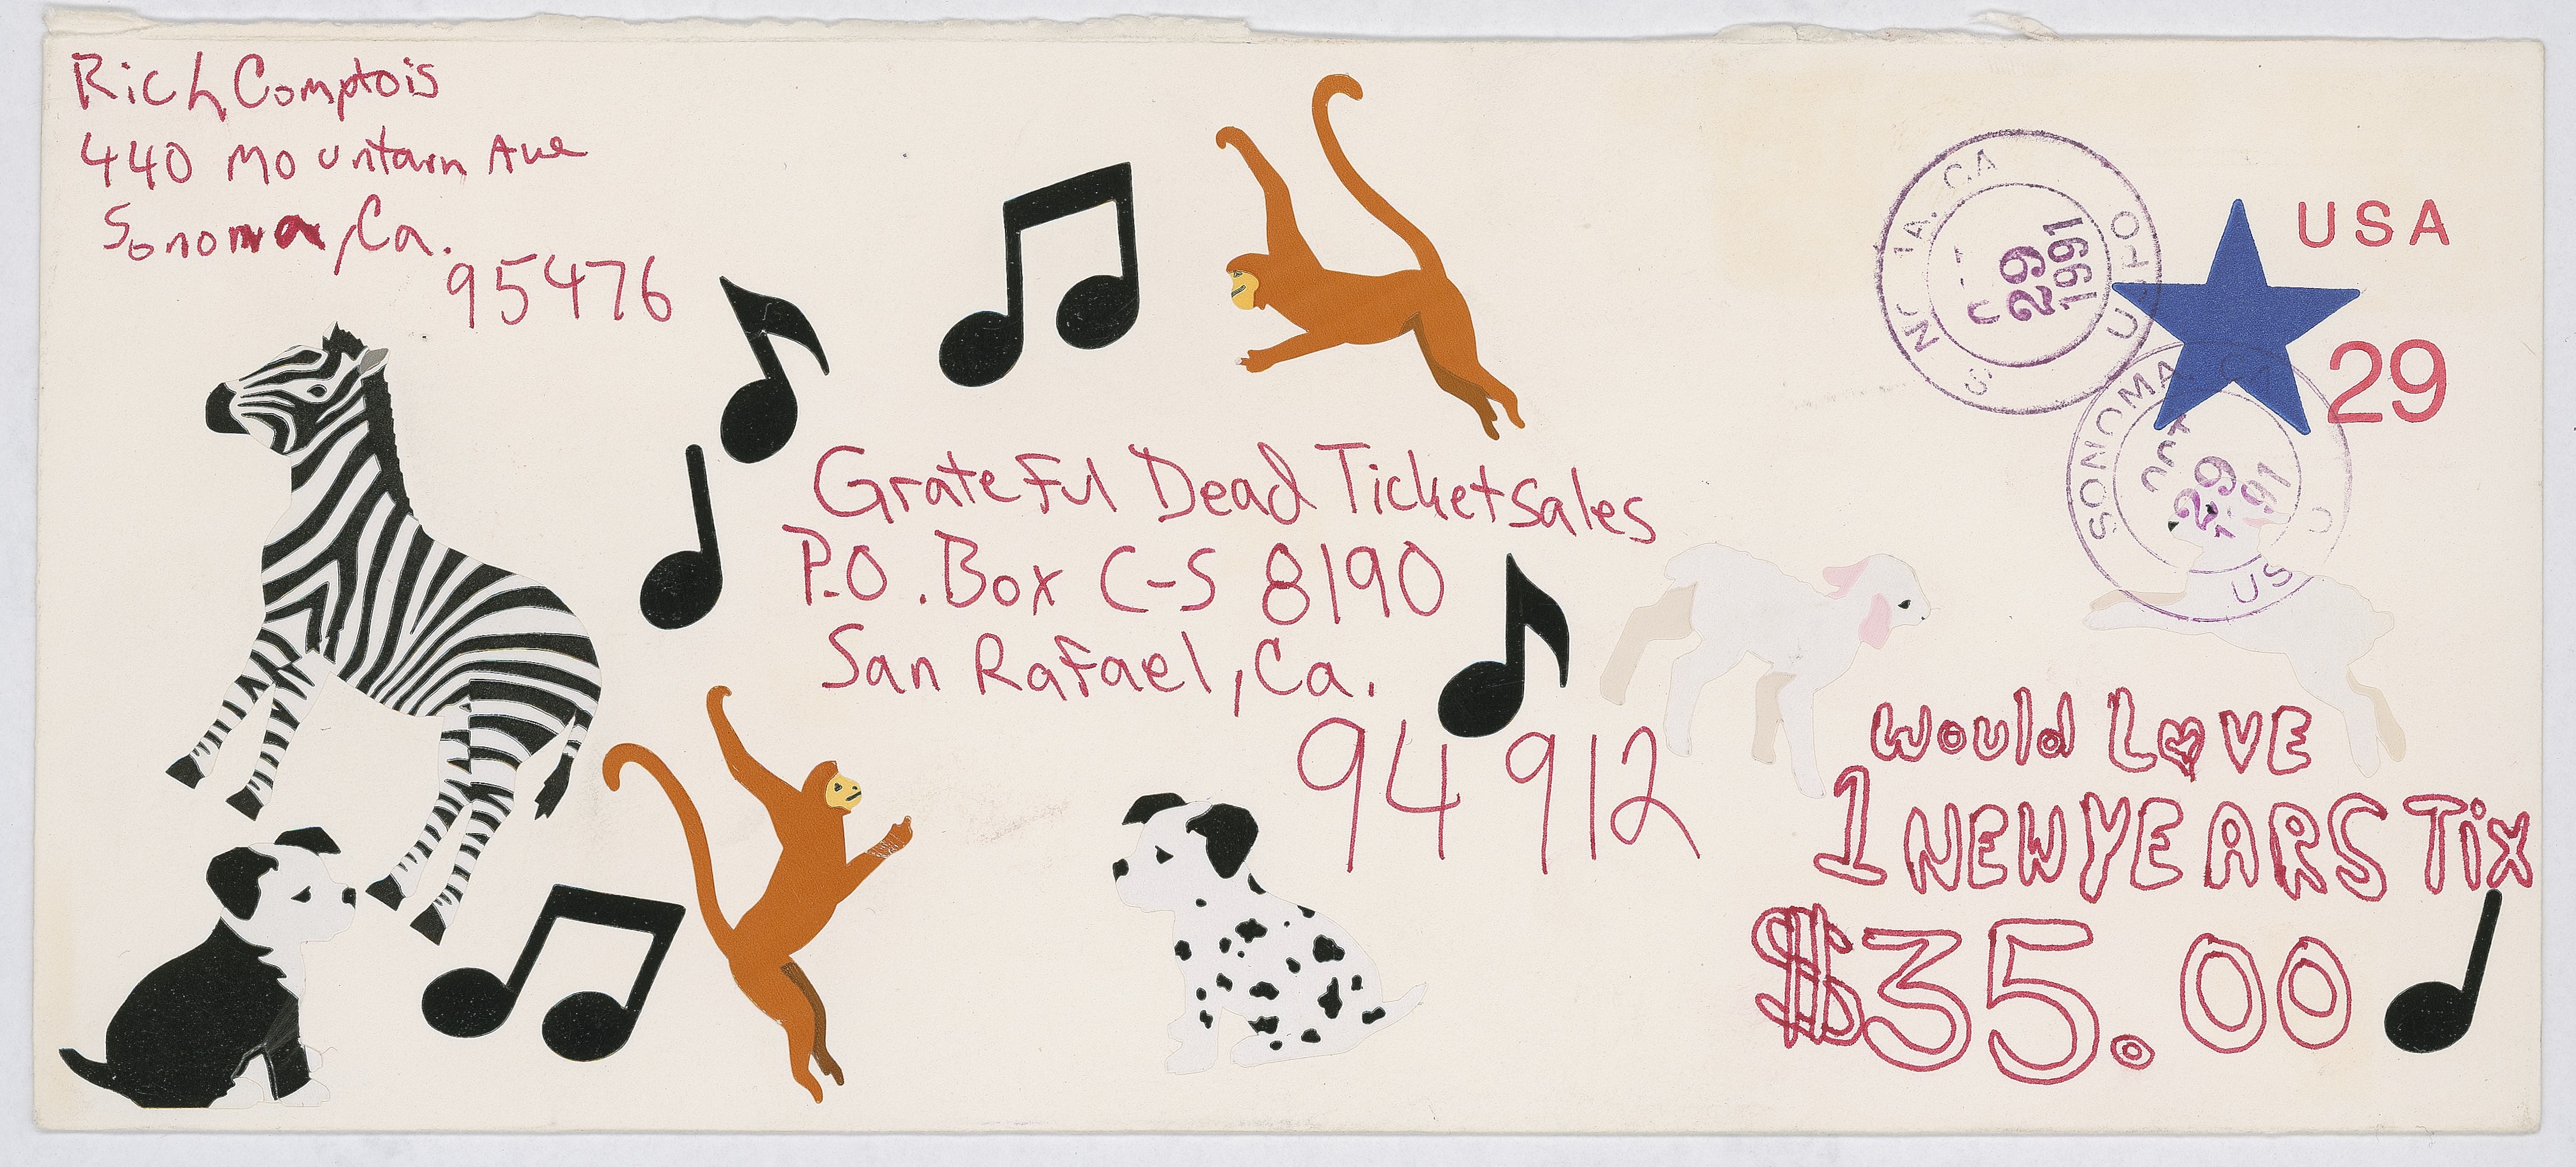 Rich Comptois
440 Mountain Ave
Sonoma, Ca.
95476
USA
29
29
1991
SONOMA, CA
OCT
29
1991
Grateful Dead Ticket Sales
P.O. Box C-S 8190
San Rafael, Ca.
94912
Would LOVE
1 NEW YEARS Tix
$35.00